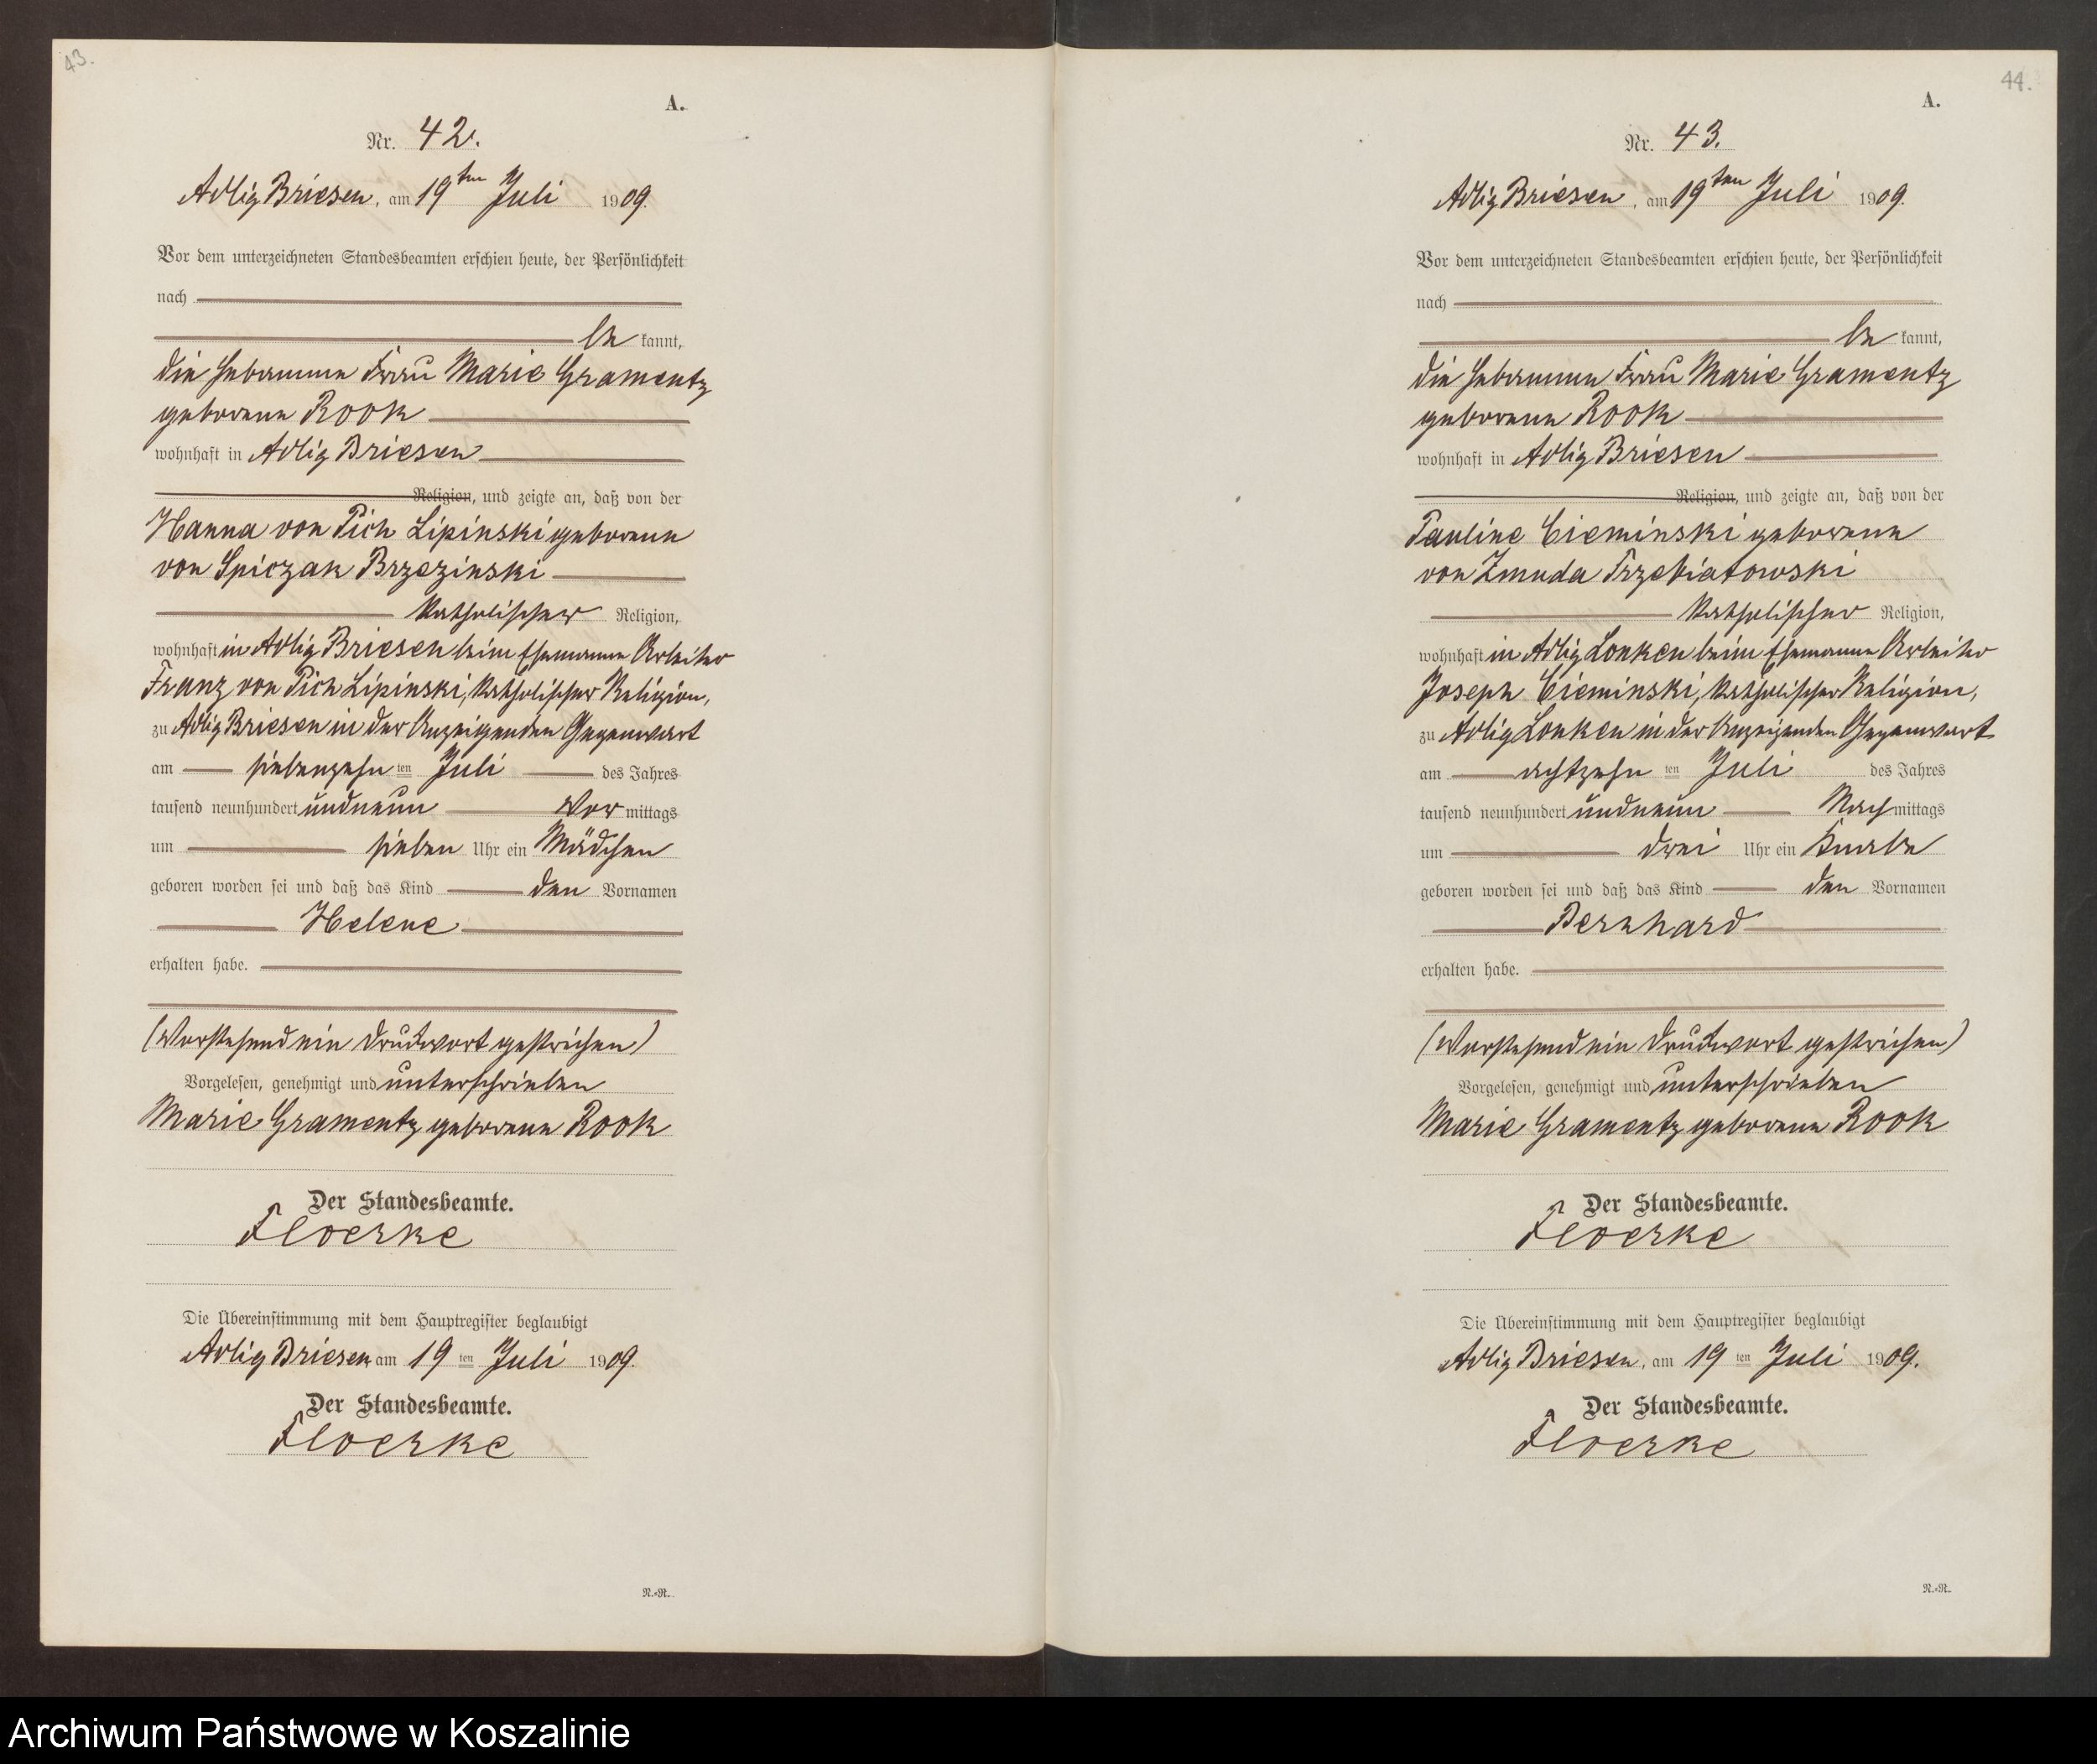 43.
A.
Nr. 42.
Adlig Briesen, am 19ten Juli 1909.
Vor dem unterzeichneten Standesbeamten erschien heute, der Persönlichkeit
nach
be kannt,
die Hebamme Frau Marie Gramentz
geborene Rook
wohnhaft in Adlig Briesen
Religion, und zeigte an, daß von der
Hanna von Pich Lipinski geborene
von Spiczak Brzezinski
katholischer Religion,
wohnhaft in Adlig Briesen beim Ehemanne Arbeiter
Franz von Pich Lipinski, katholischer Religion,
zu Adlig Briesen in der Anzeigenden Gegenwart
am siebenzehn ten Juli des Jahres
tausend neunhundert undneun Vor mittags
um sieben Uhr ein Mädchen
geboren worden sei und daß das Kind den Vornamen
Helene
erhalten habe.
(Vorstehend ein Druckwort gestrichen)
Vorgelesen, genehmigt und unterschrieben
Marie Gramentz geborene Rook
Der Standesbeamte.
Floerke
Die Übereinstimmung mit dem Hauptregister beglaubigt
Adlig Briesen am 19 ten Juli 1909.
Der Standesbeamte.
Floerke
N.=R.
44.
A.
Nr. 43.
Adlig Briesen, am 19ten Juli 1909.
Vor dem unterzeichneten Standesbeamten erschien heute, der Persönlichkeit
nach
be kannt,
die Hebamme Frau Marie Gramentz
geborene Rook
wohnhaft in Adlig Briesen
Religion, und zeigte an, daß von der
Pauline Cieminski geborene
von Zmuda Trzebiatowski
katholischer Religion,
wohnhaft in Adlig Lonken beim Ehemanne Arbeiter
Joseph Cieminski, katholischer Religion,
zu Adlig Lonken in der Anzeigenden Gegenwart
am achtzehn ten Juli des Jahres
tausend neunhundert undneun Nach mittags
um drei Uhr ein Knabe
geboren worden sei und daß das Kind den Vornamen
Bernhard
erhalten habe.
(Vorstehend ein Druckwort gestrichen)
Vorgelesen, genehmigt und unterschrieben
Marie Gramentz geborene Rook
Der Standesbeamte.
Floerke
Die Übereinstimmung mit dem Hauptregister beglaubigt
Adlig Briesen, am 19 ten Juli 1909.
Der Standesbeamte.
Floerke
N.=R.
Archiwum Państwowe w Koszalinie